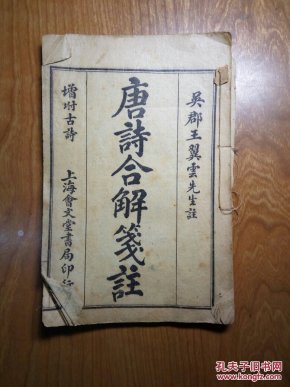 吳郡王翼雲先生註
唐詩合解箋註
增附古詩
上海會文堂書局印行
孔夫子旧书网